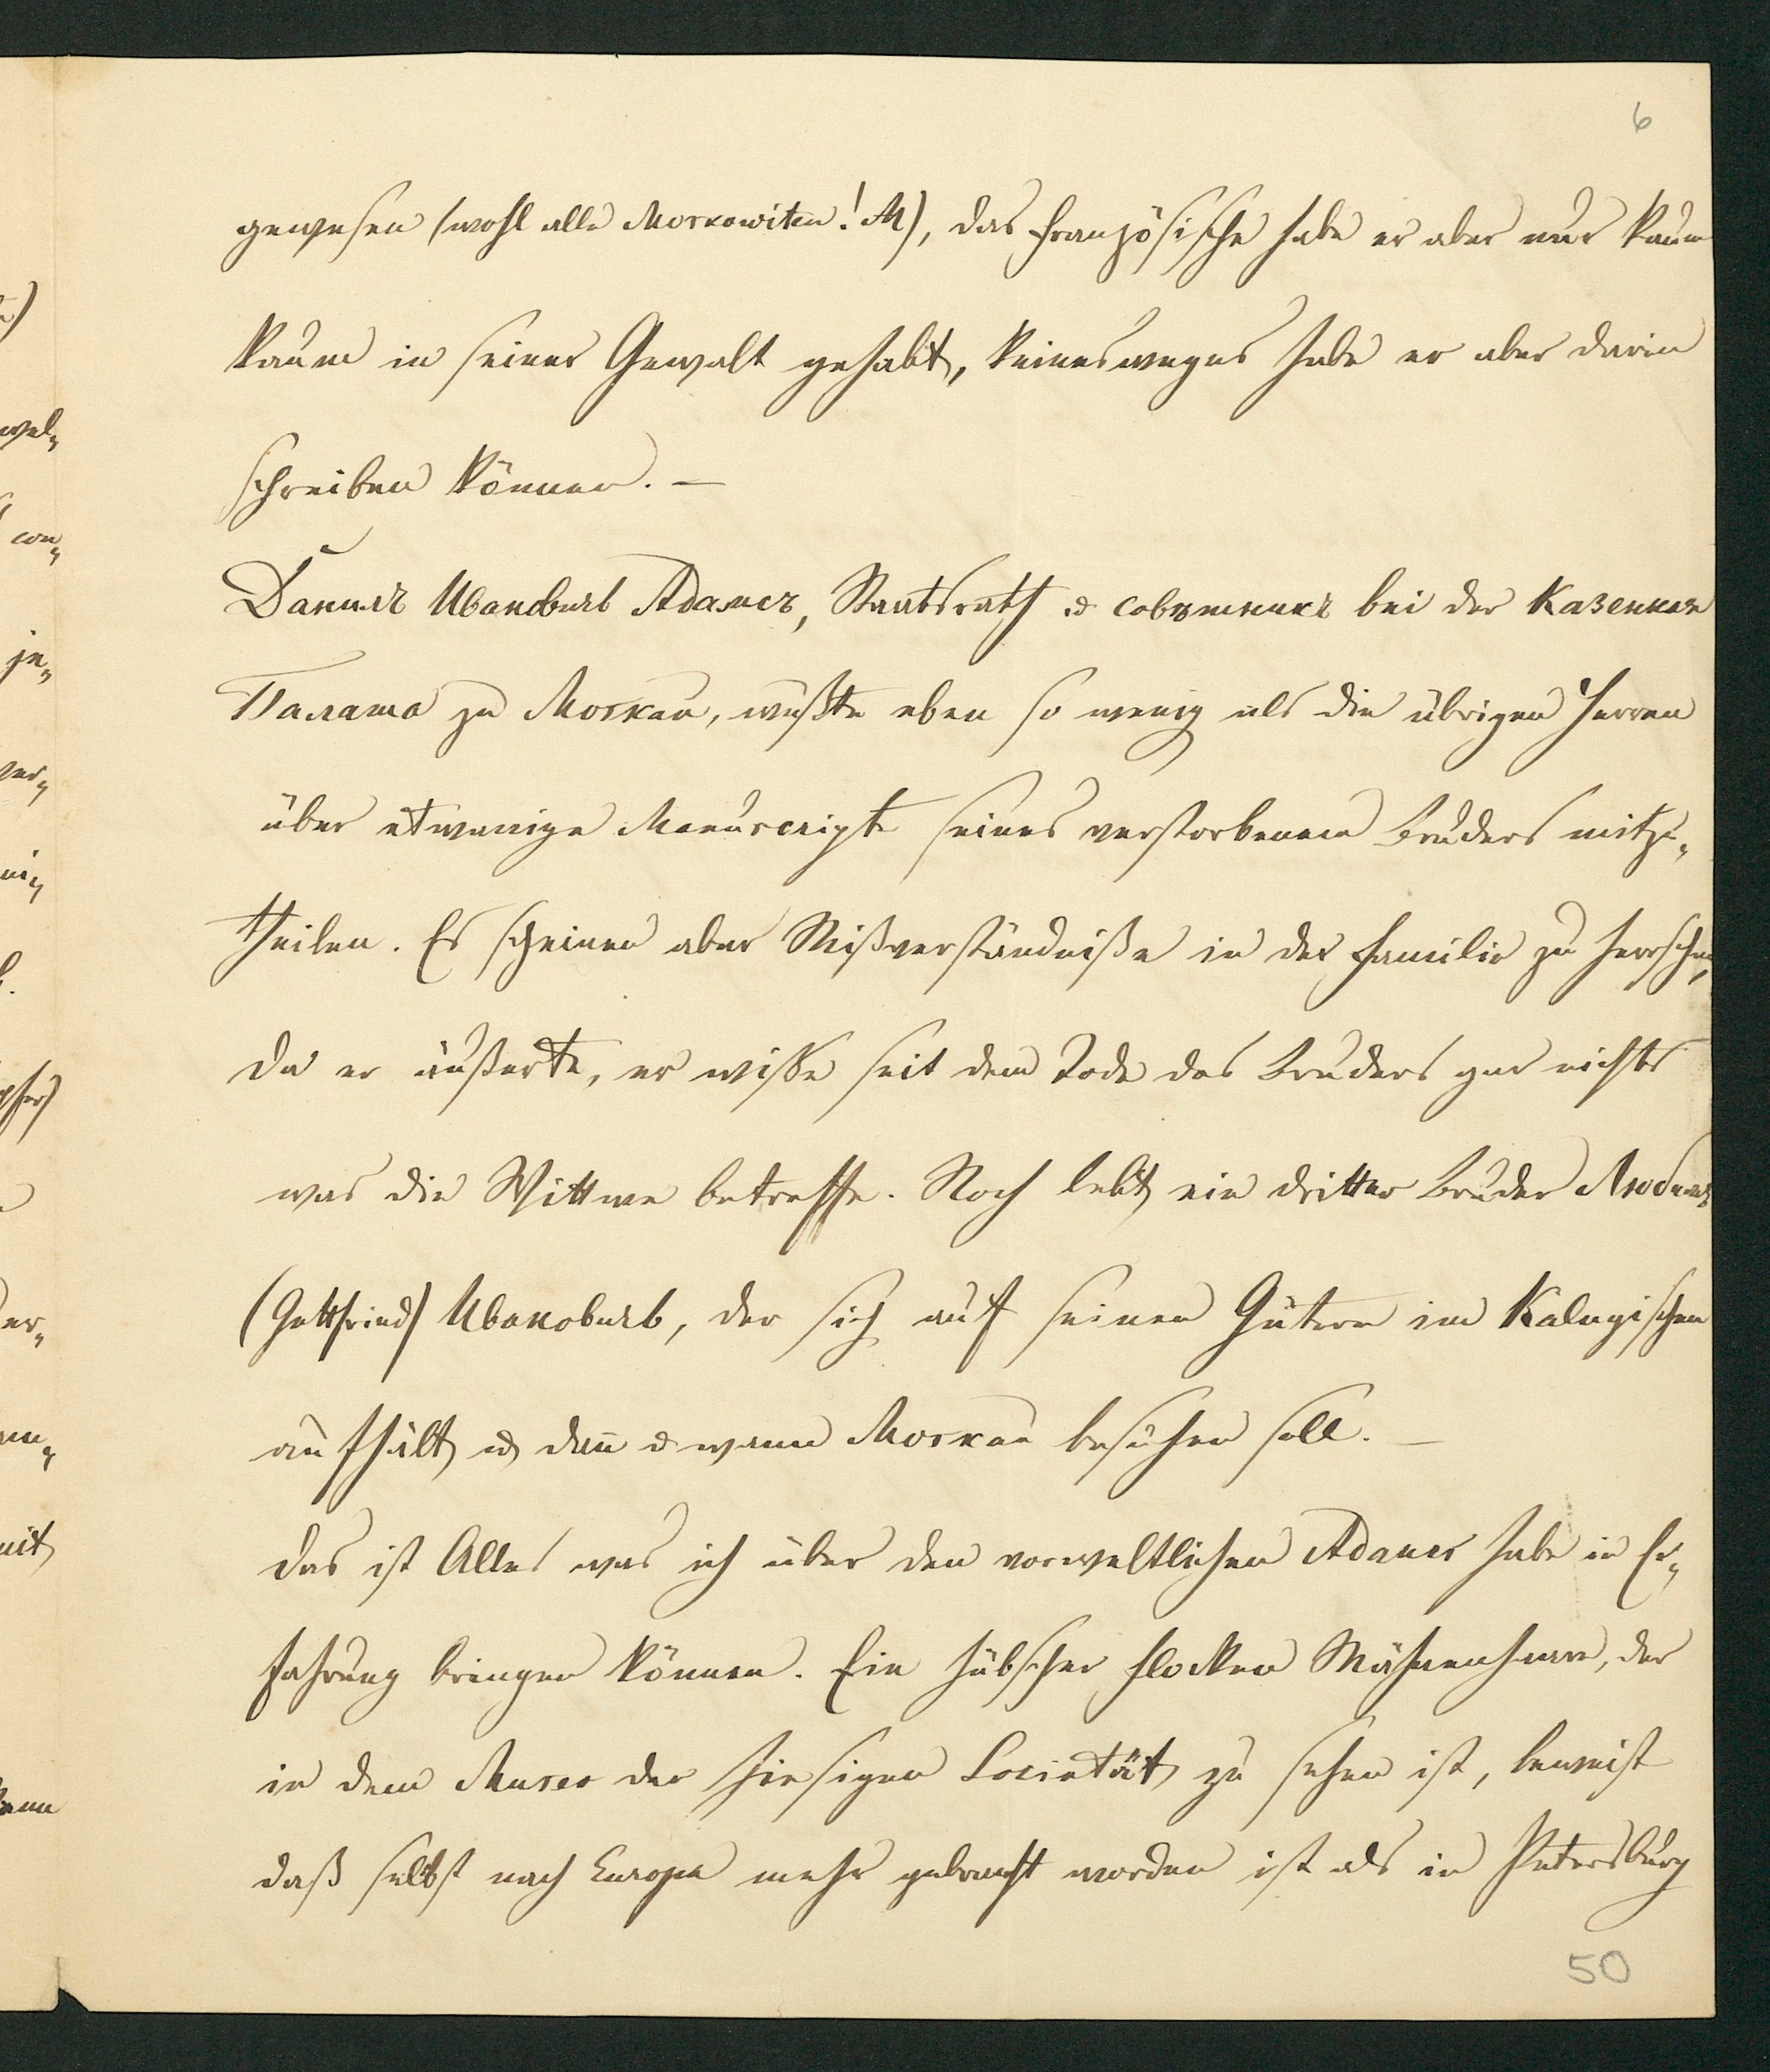 6
gewesen (wohl alle Moskowiten! M), das Französische habe er aber nur kaum
kaum in seiner Gewalt gehabt, keinesweges habe er aber darin
schreiben können. —
Данилъ Ивановичь Адамсъ, Staatsrath & совѣтникъ bei der Казенная
Палата zu Moskau, wußte eben so wenig als die übrigen Herren
über etwanige Manuscripte seines verstorbenen Bruders mitzu-
theilen. Es scheinen aber Mißverständniße in der Familie zu herrschen,
da er äußerte, er wisse seit dem Tode des Bruders gar nichts
was die Wittwe betreffe. Noch lebt ein dritter Bruder
(Gottfried) Ивановичь, der sich auf seinen Gütern im Kalugischen
aufhält & dann & wann Moskau besuchen soll. —
Das ist Alles was ich über den vorweltlichen Adams habe in Er-
fahrung bringen können. Ein hübscher Flocken Mähnenhaare, der
in dem Museo der hiesigen Societät zu sehen ist, beweist
daß selbst nach Europa mehr gebracht worden ist als in Petersburg
50
wel-
con-
je-
ver-
er-
mit